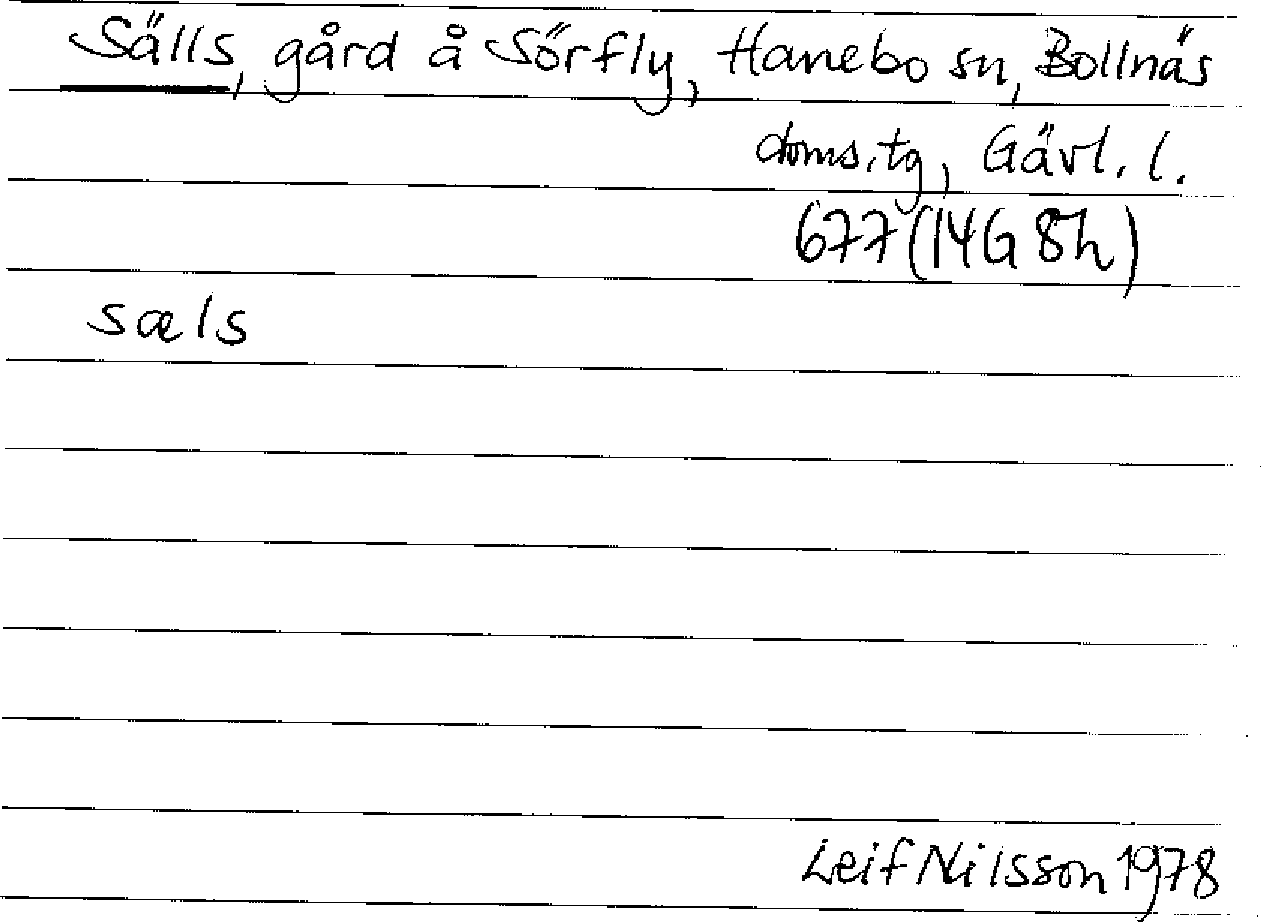 Sälls, gård å Sörfly, Hanebo sn, Bollnäs
doms.tg, Gävl. l.
677 (14G 8h)
sæls
Leif Nilsson 1978